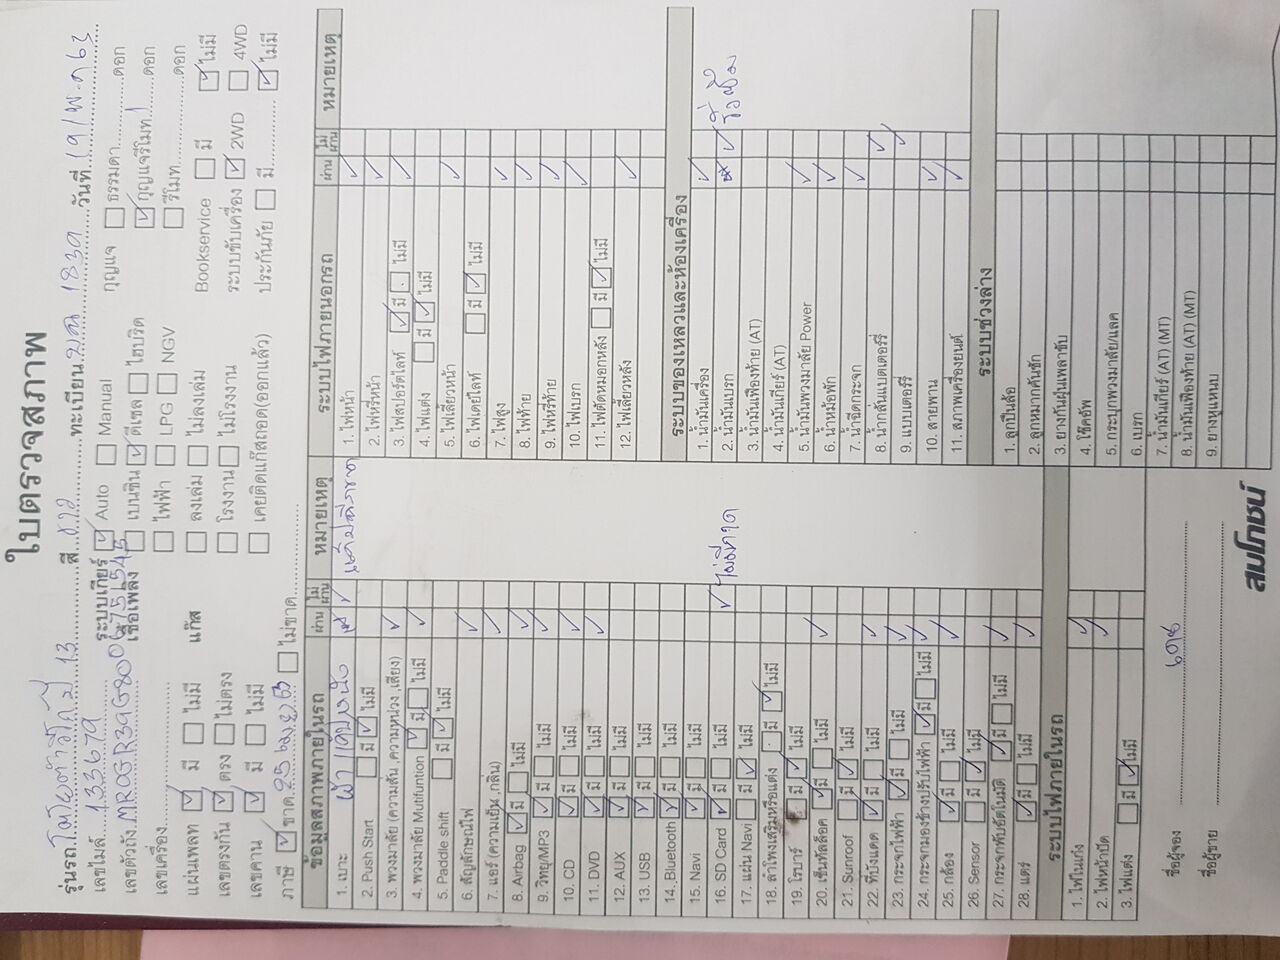 ใบตรวจสภาพ
รุ่นรถ ปี 13 ทะเบียน 1839 วันที่ 19/พ.ค 63
เลขไมล์ 133679 สี ขาว
ระบบเกียร์ Auto Manual กุญแจ ธรรมดา ดอก
เลขตัวถัง เชื้อเพลิง เบนซิน ดีเซล ไฮบริด กุญแจรีโมท 1 ดอก
เลขเครื่อง ไฟฟ้า LPG NGV รีโมท ดอก
แผ่นเพลท มี ไม่มี แก๊ส ลงเล่ม ไม่ลงเล่ม Bookservice มี ไม่มี
เลขตรงกัน ตรง ไม่ตรง โรงงาน ไม่โรงงาน ระบบขับเครื่อง 2WD 4WD
เลขคาน มี ไม่มี เคยติดแก๊สถอด(ออกแล้ว) ประกันภัย มี ไม่มี
ภาษี ขาด 25 เม.ย 63 ไม่ขาด
ข้อมูลสภาพภายในรถ ผ่าน ไม่ผ่าน หมายเหตุ
1. เบาะ ผ้า หนัง
2. Push Start มี ไม่มี
3. พวงมาลัย (ความสั่น ,ความหน่วง ,เสียง)
4. พวงมาลัย Multifuntion มี ไม่มี
5. Paddle shift มี ไม่มี
6. สัญลักษณ์ไฟ
7. แอร์ (ความเย็น ,กลิ่น)
8. Airbag มี ไม่มี
9. วิทยุ/MP3 มี ไม่มี
10. CD มี ไม่มี
11. DVD มี ไม่มี
12. AUX มี ไม่มี
13. USB มี ไม่มี
14. Bluetooth มี ไม่มี
15. Navi มี ไม่มี
16. SD Card มี ไม่มี
17. แผ่น Navi มี ไม่มี
18. ลำโพงเสริมหรือแต่ง มี ไม่มี
19. โรบาร์ มี ไม่มี
20. เซ็นทัลล็อค มี ไม่มี
21. Sunroof มี ไม่มี
22. ที่ปังแดด มี ไม่มี
23. กระจกไฟฟ้า มี ไม่มี
24. กระจกมองข้างปรับไฟฟ้า มี ไม่มี
25. กล้อง มี ไม่มี
26. Sensor มี ไม่มี
27. กระจกพับอัตโนมัติ มี ไม่มี
28. แตร์ มี ไม่มี
ระบบไฟภายในรถ
1. ไฟในเก๋ง
2. ไฟหน้าปัด
3. ไฟแต่ง มี ไม่มี
ระบบไฟภายนอกรถ ผ่าน ไม่ผ่าน หมายเหตุ
1. ไฟหน้า
2. ไฟหรี่หน้า
3. ไฟสปอร์ตไลท์ มี ไม่มี
4. ไฟแต่ง มี ไม่มี
5. ไฟเลี้ยวหน้า
6. ไฟเดย์ไลท์ มี ไม่มี
7. ไฟสูง
8. ไฟท้าย
9. ไฟหรี่ท้าย
10. ไฟเบรก
11. ไฟตัดหมอกหลัง มี ไม่มี
12. ไฟเลี้ยวหลัง
ระบบของเหลวและห้องเครื่อง
1. น้ำมันเครื่อง
2. น้ำมันเบรก รั่วซึม
3. น้ำมันเฟืองท้าย (AT)
4. น้ำมันเกียร์ (AT)
5. น้ำมันพวงมาลัย Power
6. น้ำหม้อพัก
7. น้ำฉีดกระจก
8. น้ำกลั่นแบตเตอร์รี่
9. แบบเตอร์รี่
10. สายพาน
11. สภาพเครื่องยนต์
ระบบช่วงล่าง
1. ลูกปืนล้อ
2. ลูกหมากคันชัก
3. ยางกันฝุ่นเพลาขับ
4. โช๊คอัพ
5. กระปุกพวงมาลัย/แลค
6. เบรก
7. น้ำมันเกียร์ (AT) (MT)
8. น้ำมันเฟืองท้าย (AT) (MT)
9. ยางหูแหนบ
ชื่อผู้จอง
ชื่อผู้ขาย
สมโภชน์